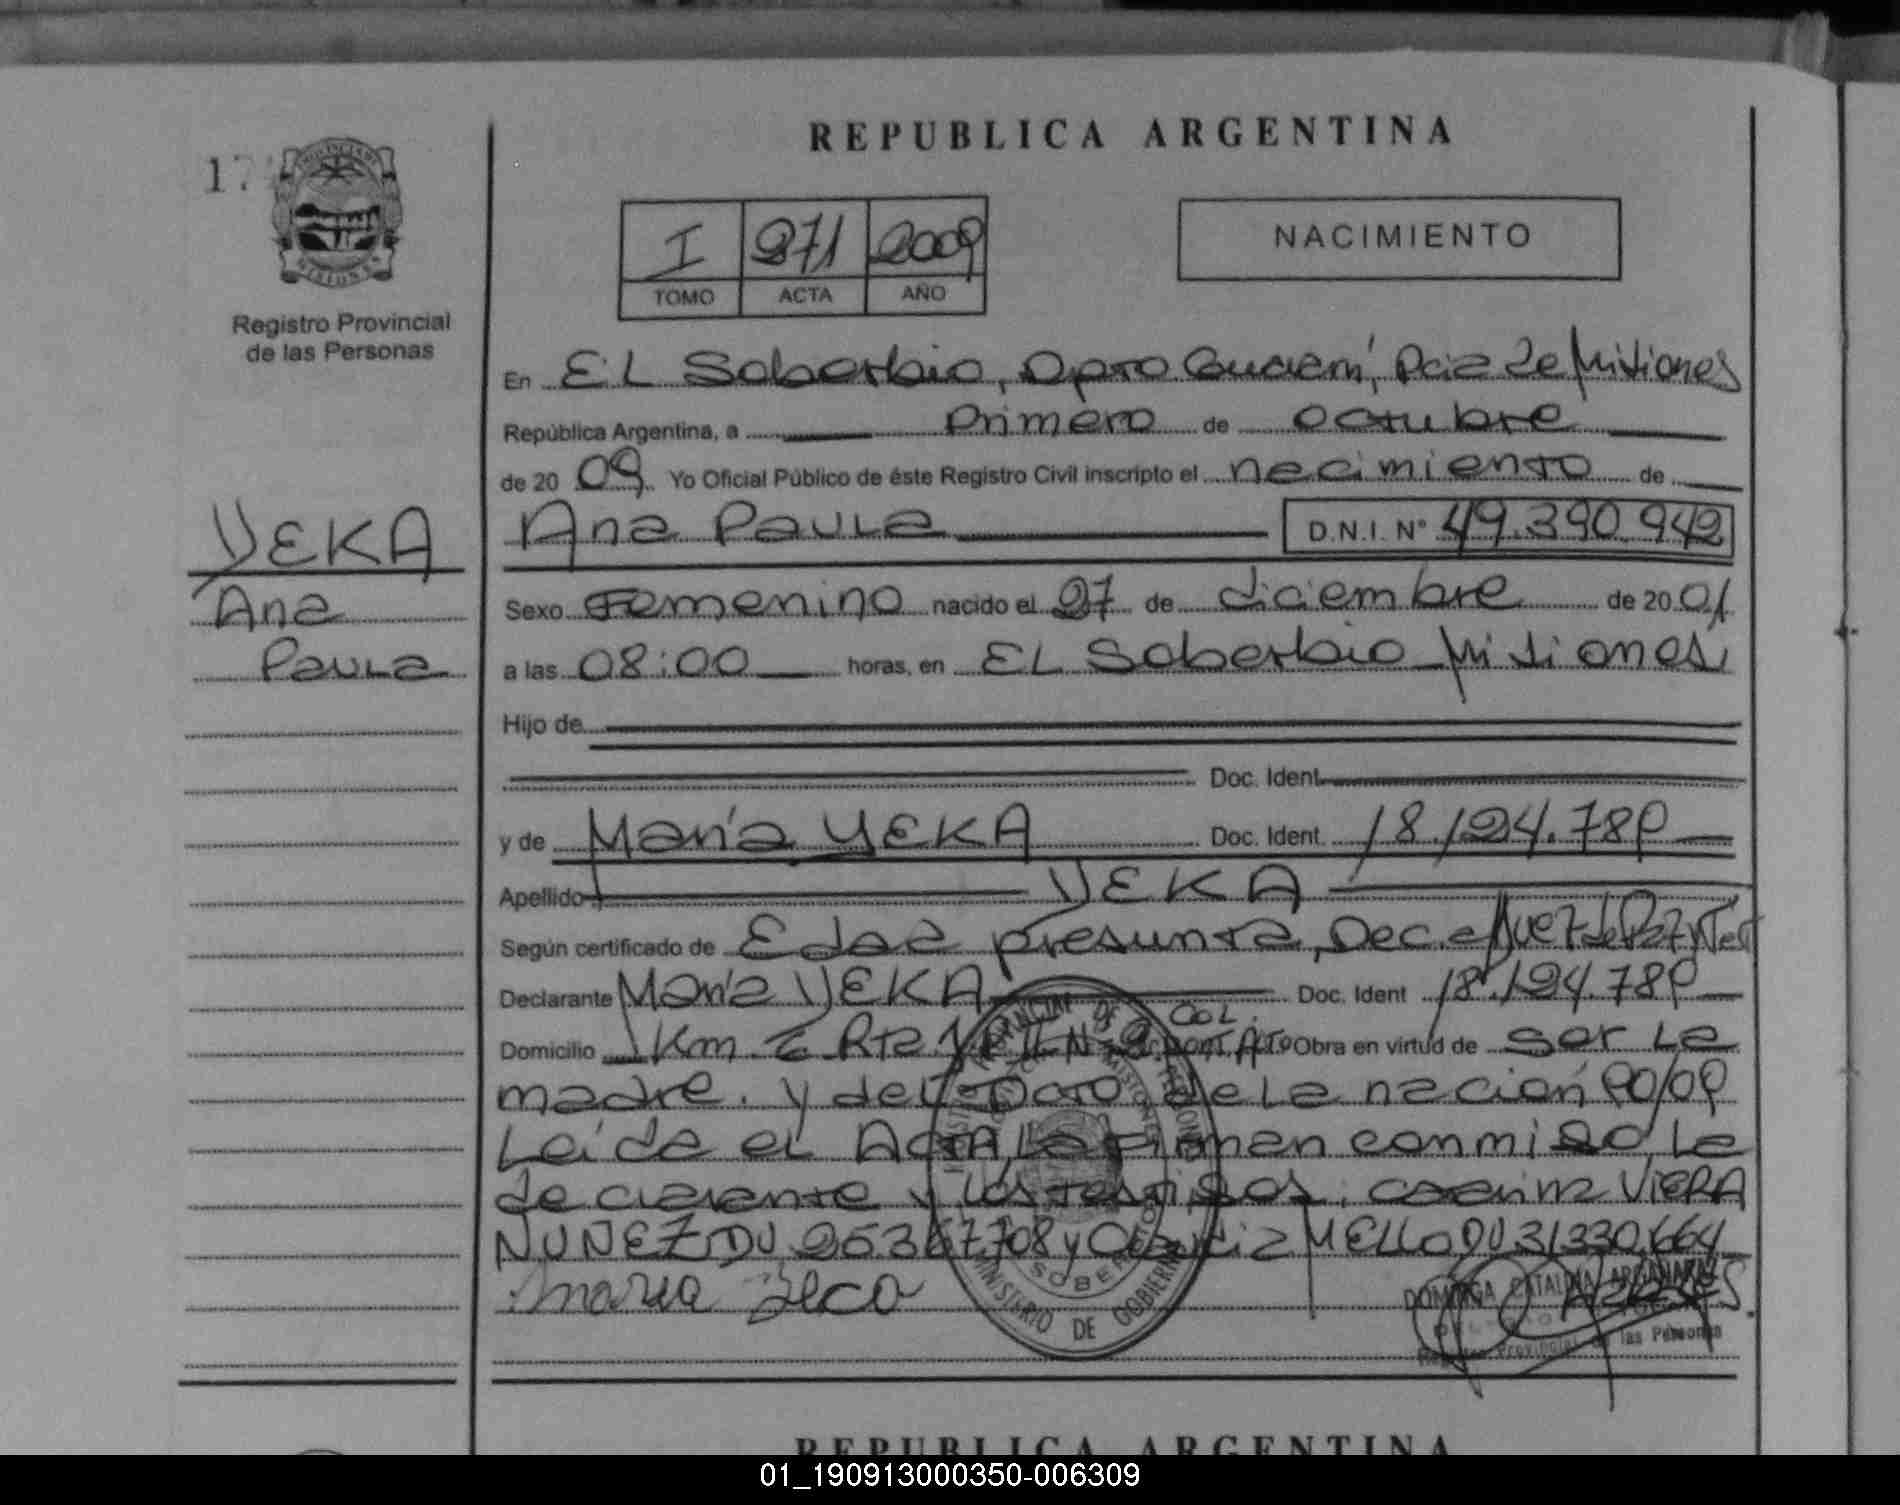 REPUBLICA ARGENTINA
17
PROVINCIA DE
MISIONES
Registro Provincial
de las Personas
I 271 2009
TOMO ACTA AÑO
NACIMIENTO
En EL Soberbio, Dpto Guaraní, Pcia de Misiones
República Argentina, a primero de octubre
de 20 09 Yo Oficial Público de éste Registro Civil inscripto el nacimiento de
YEKA
Ana
Paula
Ana Paula D.N.I. N° 49.390.942
Sexo Femenino nacido el 27 de diciembre de 20 01
a las 08:00 horas, en EL Soberbio Misiones
Hijo de
Doc. Ident.
y de María YEKA Doc. Ident. 18.124.789
Apellido YEKA
Según certificado de Edad presunta, Dec. Juez de Paz y
Declarante María YEKA Doc. Ident 18.124.789
Domicilio Km. Rta. COL. ALTO Obra en virtud de ser La
madre. y dec de La nación 90/09
Leída el ACTA La Firman conmigo, La
declarante y Los testigos, VIERA
NUÑEZ DU 25367.708 y MELLO DU 31330.664
maria yeca
MINISTERIO DE GOBIERNO
SOBERBIO
DOMINGA CATALINA
Registro Provincial de las Personas
REPUBLICA ARGENTINA
01_190913000350-006309